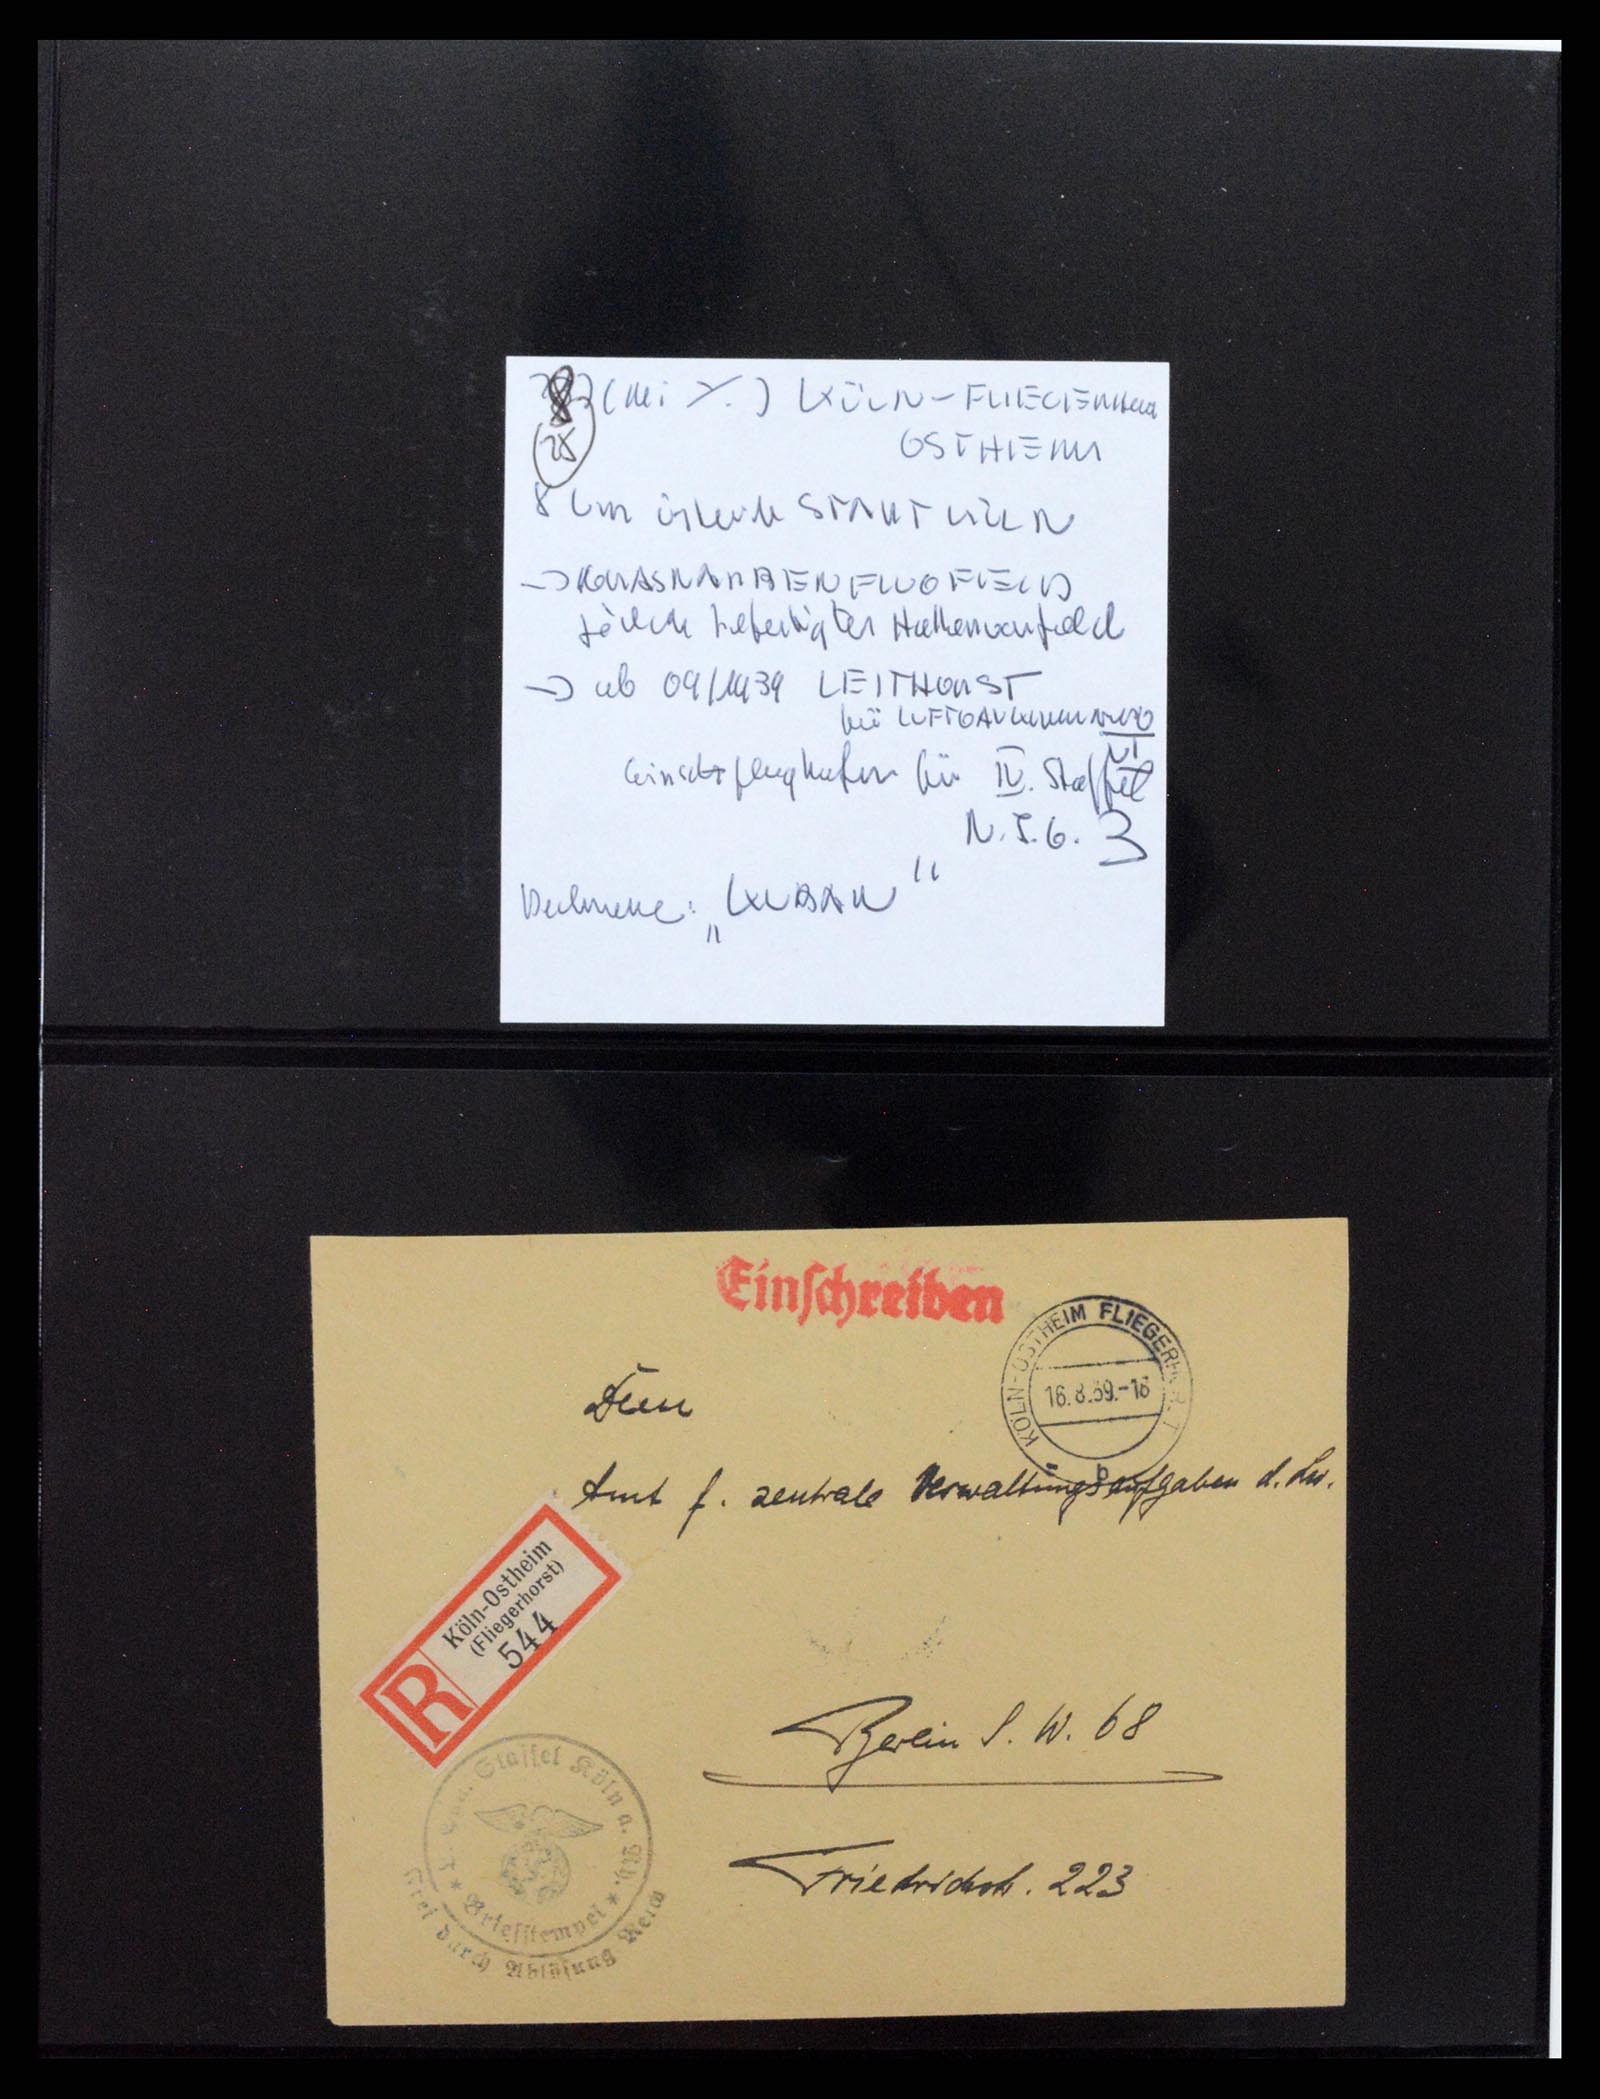 28
KÖLN-FLIEGERHORST
OSTHEIM
8 km östlich STADT KÖLN
→ GRASNARBENFLUGFELD
örtlich befestigtes Hallenvorfeld
→ ab 09/1939 LEITHORST
LUFTGAUKOMMANDO
VI
Einsatzflughafen für IV. Staffel
N.J.G. 3
Deckname: „KUBAN"
Einschreiben
KÖLN-OSTHEIM FLIEGERHORST
16.8.39.-18
b
Dem
Amt f. zentrale Verwaltungsaufgaben d. Lw.
Köln-Ostheim
(Fliegerhorst)
544
R
Berlin S. W. 68
Friedrichstr. 223
Staffel Köln a. Rh.
* Briefstempel *
Frei durch Ablösung Reich